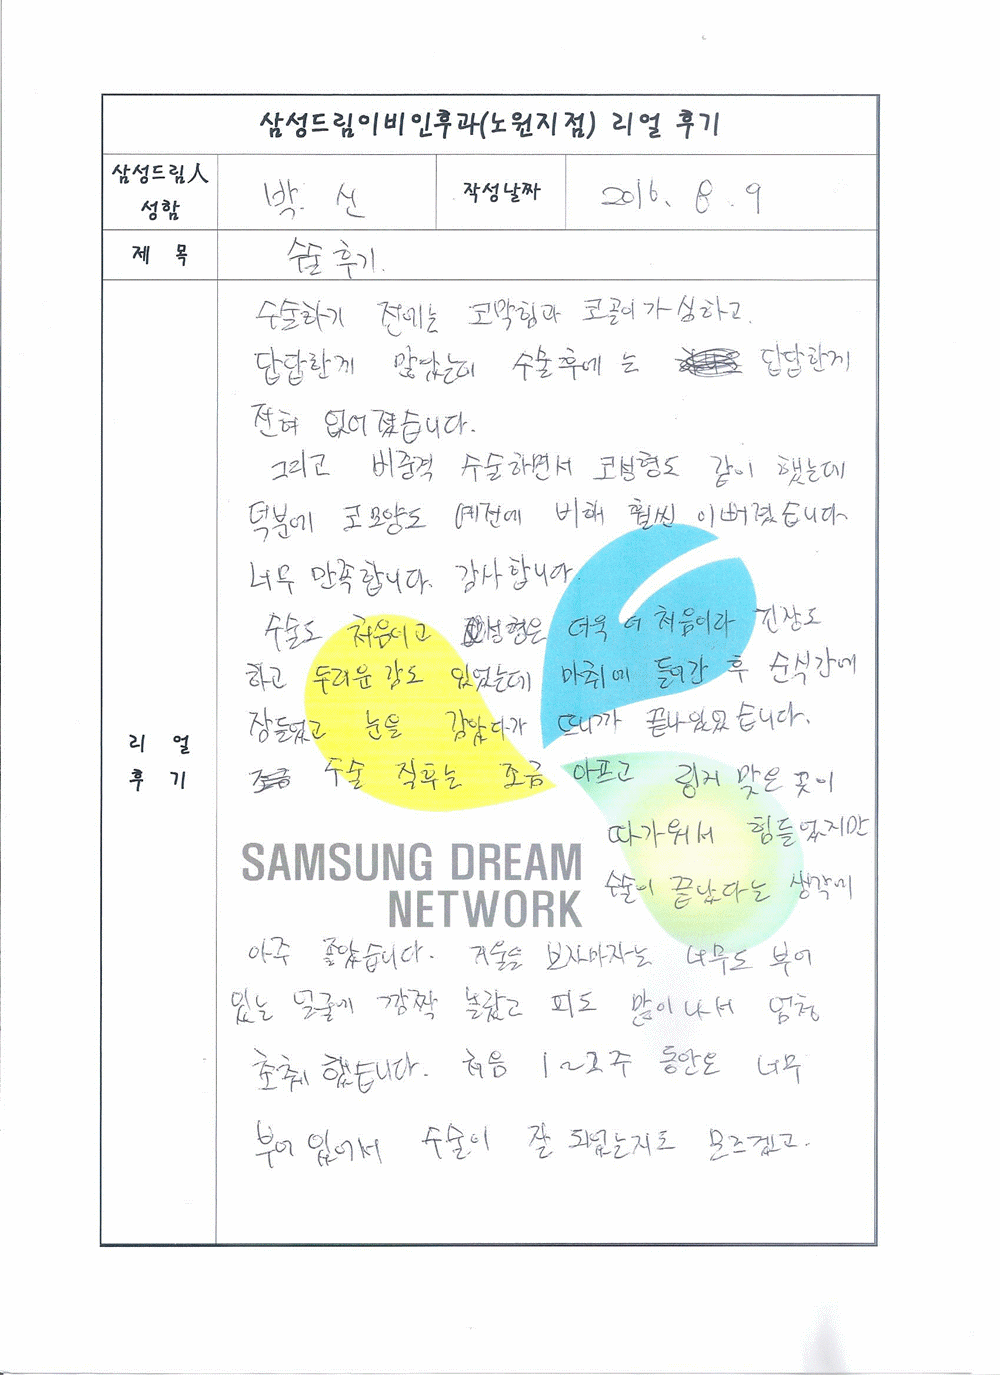 삼성드림이비인후과(노원지점) 리얼 후기
삼성드림人 성함
박 선
작성날짜
2016. 8. 9
제 목
수술 후기.
리 얼 후 기
수술하기 전에는 코막힘과 코골이가 심하고.
답답한게 많았는데 수술후에 는 답답한게
전혀 없어졌습니다.
그리고 비중격 수술하면서 코성형도 같이 했는데
덕분에 코모양도 예전에 비해 훨씬 이뻐졌습니다
너무 만족합니다. 감사합니다.
수술도 처음이고 코성형은 더욱 더 처음이라 긴장도
하고 두려운감도 있었는데 마취에 들어간 후 순식간에
잠들었고 눈을 감았다가 뜨니까 끝나있었습니다.
수술 직후는 조금 아프고 링거 맞은 곳이
따가워서 힘들었지만
수술이 끝났다는 생각에
아주 좋았습니다. 거울을 보자마자는 너무도 부어
있는 얼굴에 깜짝 놀랐고 피도 많이 나서 엄청
초췌했습니다. 처음 1~2주 동안은 너무
부어 있어서 수술이 잘 되었는지도 모르겠고.
SAMSUNG DREAM
NETWORK